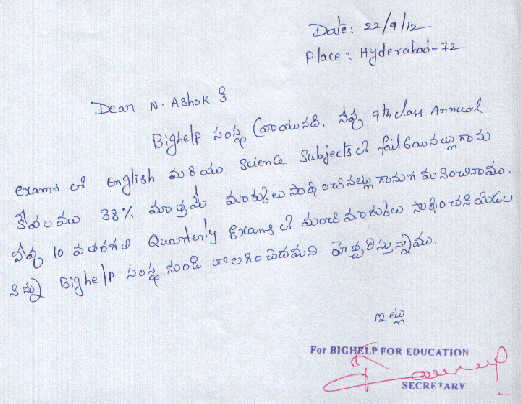 Date: 22/9/12
Place: Hyderabad-72
Dear N. Ashok కి
Bighelp సంస్థ వ్రాయునది. నీవు 9th class Annual
exams లో English మరియు Science Subjects లో fail అయినట్లుగాను
కేవలము 38% మాత్రమే మార్కులు సాధించినట్లుగాను గమనించినాము.
నీవు 10 వతరగతి Quarterly Exams లో మంచి మార్కులు సాధించని యెడల
నిన్ను Bighelp సంస్థ నుండి తొలగించెదమని హెచ్చరిస్తున్నాము.
ఇట్లు
For BIGHELP FOR EDUCATION
SECRETARY